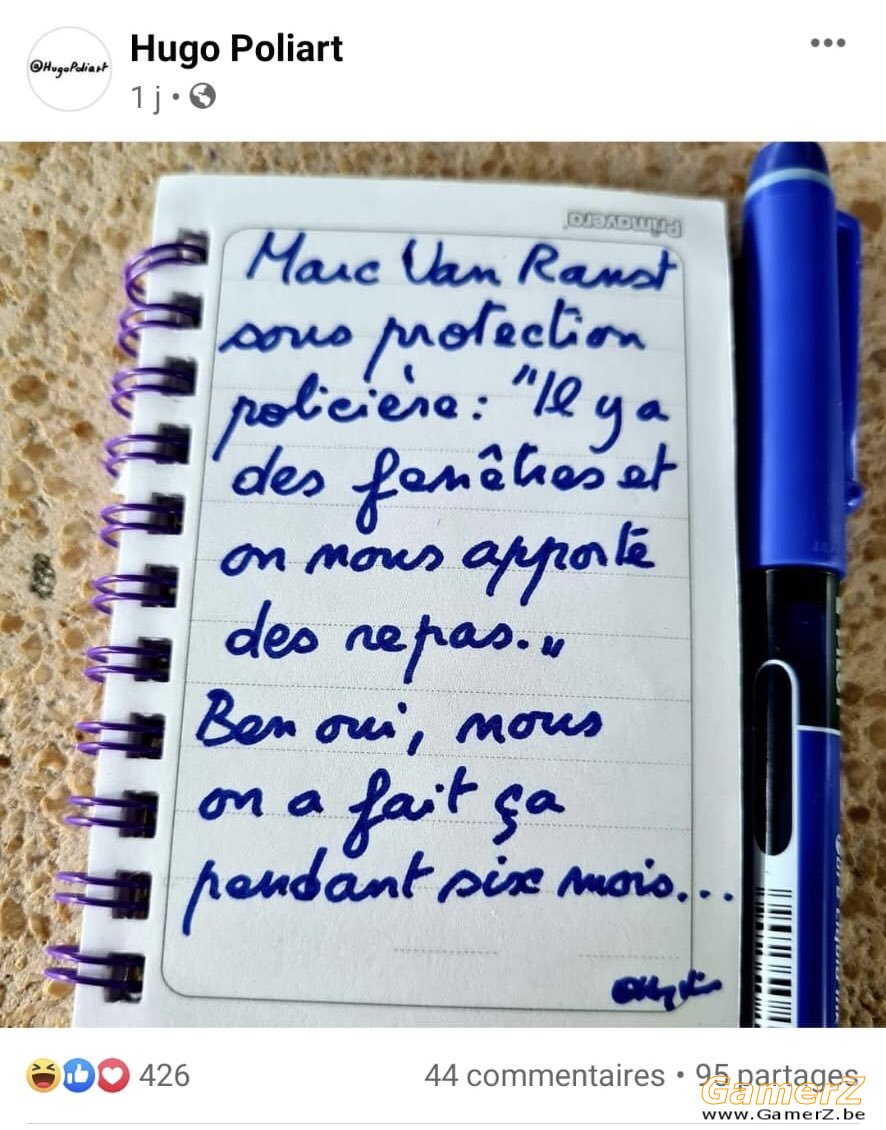 @HugoPoliart
Hugo Poliart
1 j
Primavera
Marc Van Ranst
sous protection
policière: "Il y a
des fenêtres et
on nous apporte
des repas."
Ben oui, nous
on a fait ça
pendant six mois...
426
44 commentaires • 95 partages
GamerZ
www.GamerZ.be